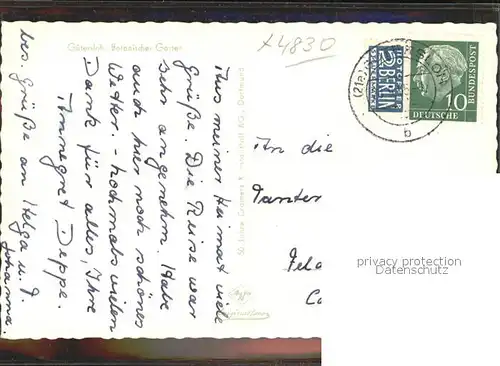 Gütersloh. Botanischer Garten
x4830
Aus meiner Heimat viele
Grüße. Die Reise war
sehr angenehm. Habe
auch hier noch schönes
Wetter. - Nochmals vielen
Dank für alles, Ihre
Annegret Deppe.
bes. Grüße an Helga u. J.
Johanna.
An die
Tanten
Cramers Kunstanstalt KG., Dortmund
NOTOPFER
2 BERLIN
STEUERMARKE
(21a)
b
10
DEUTSCHE
BUNDESPOST
privacy protection
Datenschutz